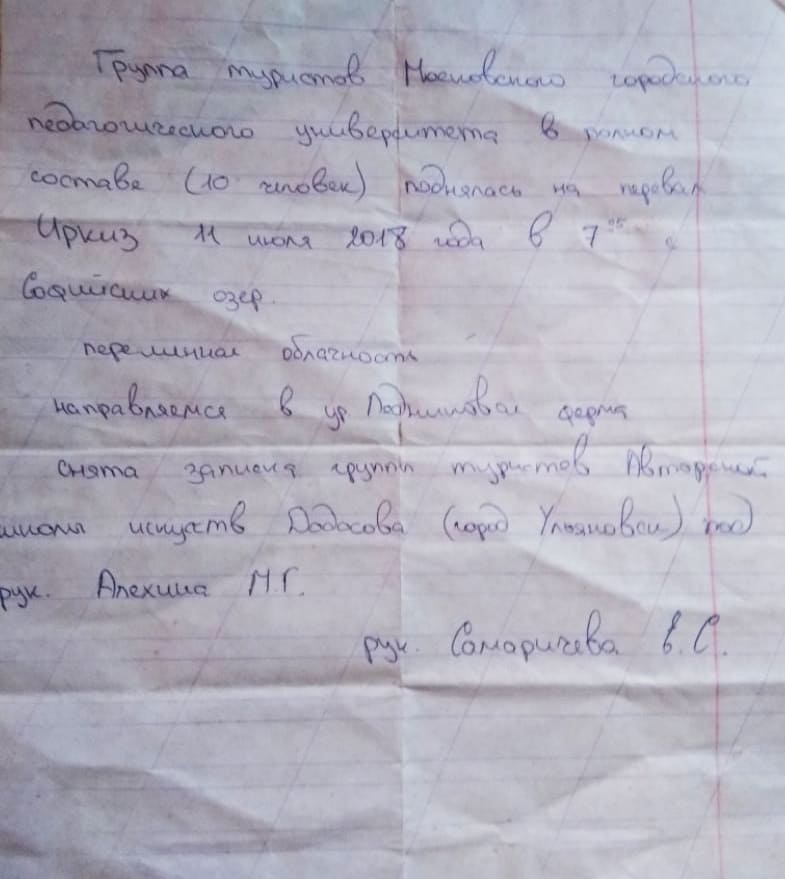 Группа туристов Московского городского
педагогического университета в полном
составе (10 человек) поднялась на перевал
Иркиз 11 июля 2018 года в 7 с
Софийских озер.
переменная облачность
направляемся в ур. Ледниковая ферма
снята записка группы туристов Авторской
школы искусств Дадасова (город Ульяновск) под
рук. Алехина М.Г.
рук. Самаричева Е.С.